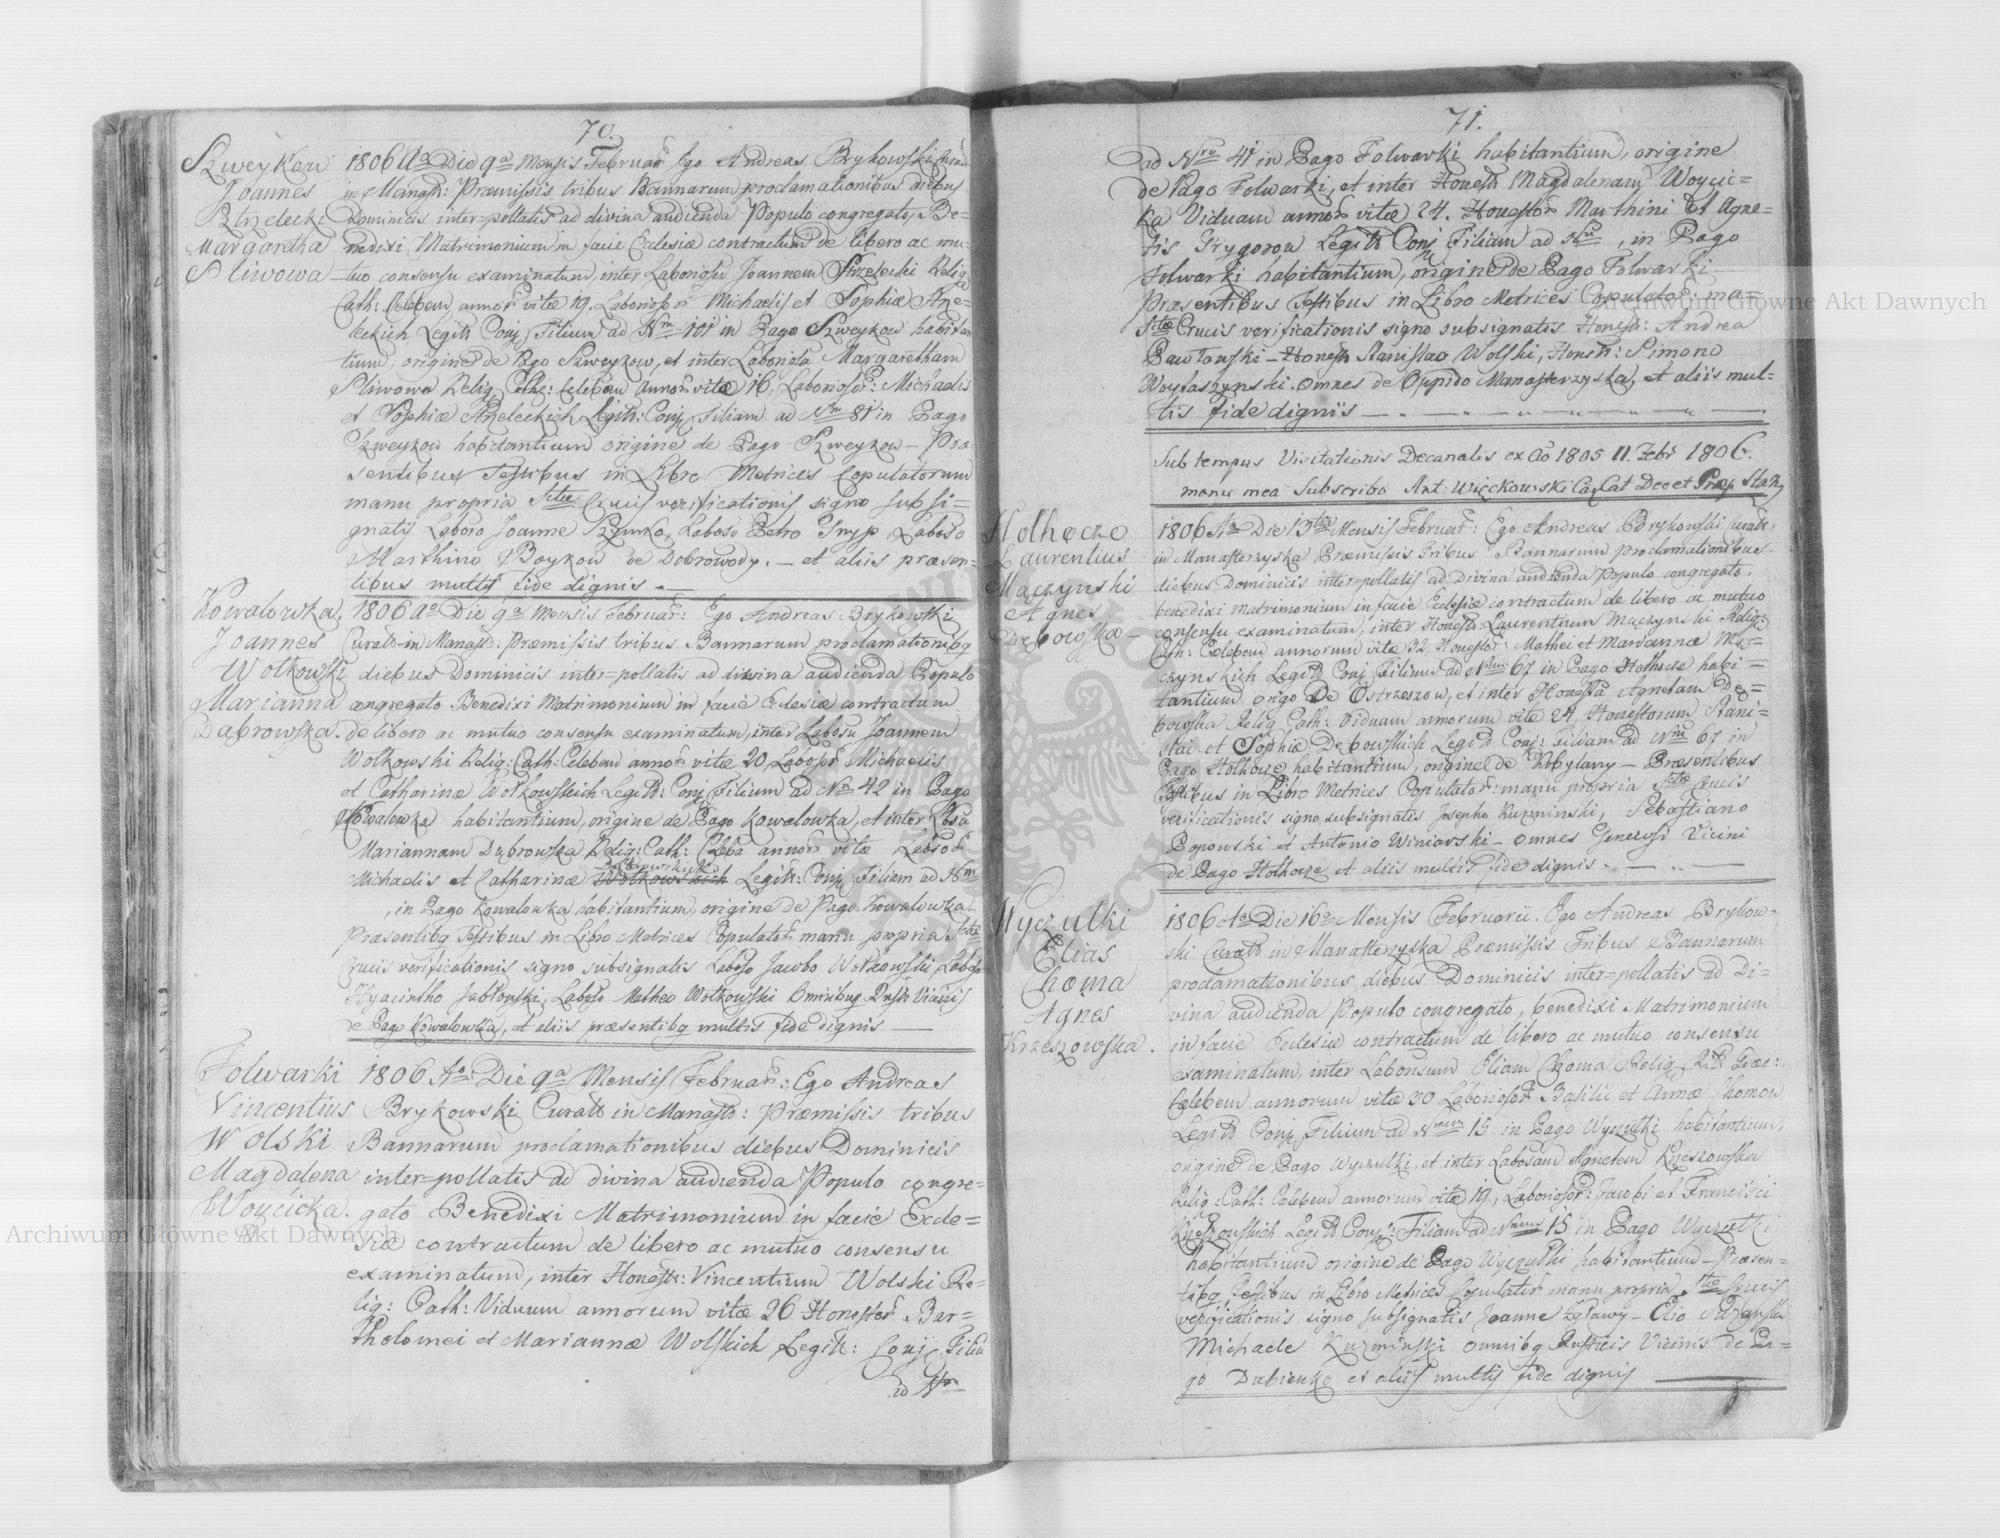 70.
Szweykow
Joannes
Strzelecki
Margaretha
Sliwowa
1806 Ao Die 9a Mensis Februar: Ego Andreas Brykowski Curat
in Manast: Præmissis tribus Bannarum proclamationibus diebus
Dominicis inter=pollatis ad divina audienda Populo congregato, Be-
nedixi Matrimonium in facie Ecclesiæ contractum de libero ac mu-
tuo consensu examinatum, inter Laboriosu Joannem Strzelecki Relig
Cath: Celebem annor vitæ 19, Laborioso Michaelis et Sophiæ Strze-
leckich Legitt Conj Filium ad Nm 101 in Pago Szweykow habitan
tium, origine de Pago Szweykow, et inter Laboriosa Margaretham
Sliwowa Relig Cath: Celebem annor vitæ 16, Laboriosor: Michaelis
et Sophiæ Strzeleckich Legitt: Conj Filiam ad Nm 81 in Pago
Szweykow habitantium origine de Pago Szweykow – Præ-
sentibus Testibus in Libro Metrices Copulatorum
manu propria Stæ Crucis verificationis signo subsi=
gnatis Laboro Joanne Laboso Petro Gnyp, Laboso
Marthino Boykow de Dobrowody. – et aliis præsen-
tibus multis fide dignis. —
Kowalowka.
Joannes
Wolkowski
Marianna
Dąbrowska.
1806 ao Die 9a Mensis Februar: Ego Andreas Brykowski
Curatt in Manast: Præmissis tribus Bannarum proclamationibq
diebus Dominicis inter=pollatis ad divina audienda Populo
congregato Benedixi Matrimonium in facie Eclesiæ contractum
de libero ac mutuo consensu examinatum, inter Labosu Joannem
Wolkowski Relig: Cath: Celebem annor vitæ 20, Labosor Michaelis
et Catharinæ Wolkowskich Legitt: Conj Filium ad Nm 42 in Pago
Kowalowka habitantium, origine de Pago Kowalowka, et inter Lbosa
Mariannam Dąbrowska Relig: Cath: Celeba annor vitæ Labsor
Michaelis et Catharinæ Wolkowskich Legitt: Conj Filiam ad Nm
, in Pago Kowalowka habitantium, origine de Pago Kowalowka
Præsentibq Testibus in Libro Metrices Copulator manu propria Stæ
Crucis verificationis signo subsignatis Laboso Jacobo Wolkowski, Laboso
Hyacintho Jabłoński, Laboso Matheo Wolkowski Omnibuq Rusts Vicinis
de Pago Kowalowka, et aliis præsentibq multis fide dignis —
Folwarki
Vincentius
Wolski
Magdalena
Woycicka.
1806 Ao Die 9a Mensis Februar: Ego Andreas
Brykowski Curatt in Manast: Præmissis tribus
Bannarum proclamationibus diebus Dominicis
inter=pollatis ad divina audienda Populo congre=
gato Benedixi Matrimonium in facie Eccle=
siæ contractum de libero ac mutuo consensu
examinatum, inter Honestt: Vincentium Wolski Re-
lig: Cath: Viduum annorum vitæ 26 Honestor Bar=
tholomei et Mariannæ Wolskich Legitt: Conj Filiu
ad Nm
71.
ad Nro 41 in Pago Folwarki habitantium, origine
de Pago Folwarki, et inter Honestt Magdalenam Woycic=
ka Viduam annor vitæ 24. Honestor Marthini et Agne=
tis Grygorow Legitt Conj Filiam ad Nm , in Pago
Folwarki habitantium, origine de Pago Folwarki
Præsentibus Testibus in Libro Metrices Copulator: ma=
Stæ Crucis verificationis signo subsignatis Honest: Andrea
Pawłowski – Honestt Stanislao Wolski, Honestt: Simone
Woytaszynski. omnes de Oppido Manasterzyska, et aliis mul-
tis fide dignis —
Sub tempus Visitationis Decanalis ex Ao 1805 11. Febr 1806.
manu mea Subscribo Ant: Więckowski Ca Cat Dec et Præp Stan
Hołhocze
Laurentius
Mączynski
Agnes
Dębowskæ –
1806 Ao Die 13tia Mensis Februar: Ego Andreas Brykowski Curatt.
in Manasterzyska Præmissis Tribus Bannarum proclamationibus
diebus Dominicis inter=pollatis ad Divina audienda Populo congregato,
benedixi matrimonium in facie Ecclesiæ contractum de libero ac mutuo
consensu examinatum, inter Honestt: Laurentium Mączynski Relig:
Cath: Celebem annorum vitæ 32, Honestor: Mathei et Mariannæ Mą=
czynskich Legitt Conj Filium ad Nm 67 in Pago Hołhocze habi=
tantium orig de Ostrzeszow, et inter Honesta Agnetam Dę=
bowska Relig Cath: Viduam annorum vitæ 24, Honestorum Stani=
slai et Sophiæ Debowskich Legitt Conj: Filiam ad Nm 67 in
Pago Hołhocze habitantium, origine de – Præsentibus
Testibus in Libro Metrices Copulator: manu propria Stæ Crucis
verificationis signo subsignatis Josepho Kuzminski, Sebastiano
Popowski et Antonio Winiarski – omnes Generosi Vicini
de Pago Hołhocze et aliis multis fide dignis —
Wyczułki
Elias
Choma
Agnes
Krzeszowska.
1806 Ao Die 16a Mensis Februarii. Ego Andreas Brykow=
ski Curatt in Manasterzyska Præmissis Tribus Bannarum
proclamationibus diebus Dominicis inter=pollatis ad Di=
vina audienda Populo congregato, benedixi Matrimonium
in facie Ecclesiæ contractum de libero ac mutuo consensu
examinatum, inter Laborisum Eliam Choma Relig Ritt Græc:
Celebem annorum vitæ 30 Laboriosor Basilii et Annæ Chomow
Legitt Conj Filium ad Nrum 15 in Pago Wyczułki habitantium,
origine de Pago Wyczulki, et inter Labosam Agnetem Krzeszowska
Relig: Cath: Celebem annorum vitæ 19, Laboriosor: Jacobi et Francisci
Krzeszowskich Legitt Conj: Filiam ad Nrum 15 in Pago Wyczułki
habitantium origine de Pago Wyczułki habitantium – Præsen=
tibq Testibus in Libro Metrices Copulator manu propria Stæ Crucis
verificationis signo subsignatis Joanne – Elio
Michaele Kuzminski omnibq Rusticis Vicinis de Pa=
go Dubienko et aliis multis fide dignis —
Archiwum Główne Akt Dawnych
Archiwum Główne Akt Dawnych